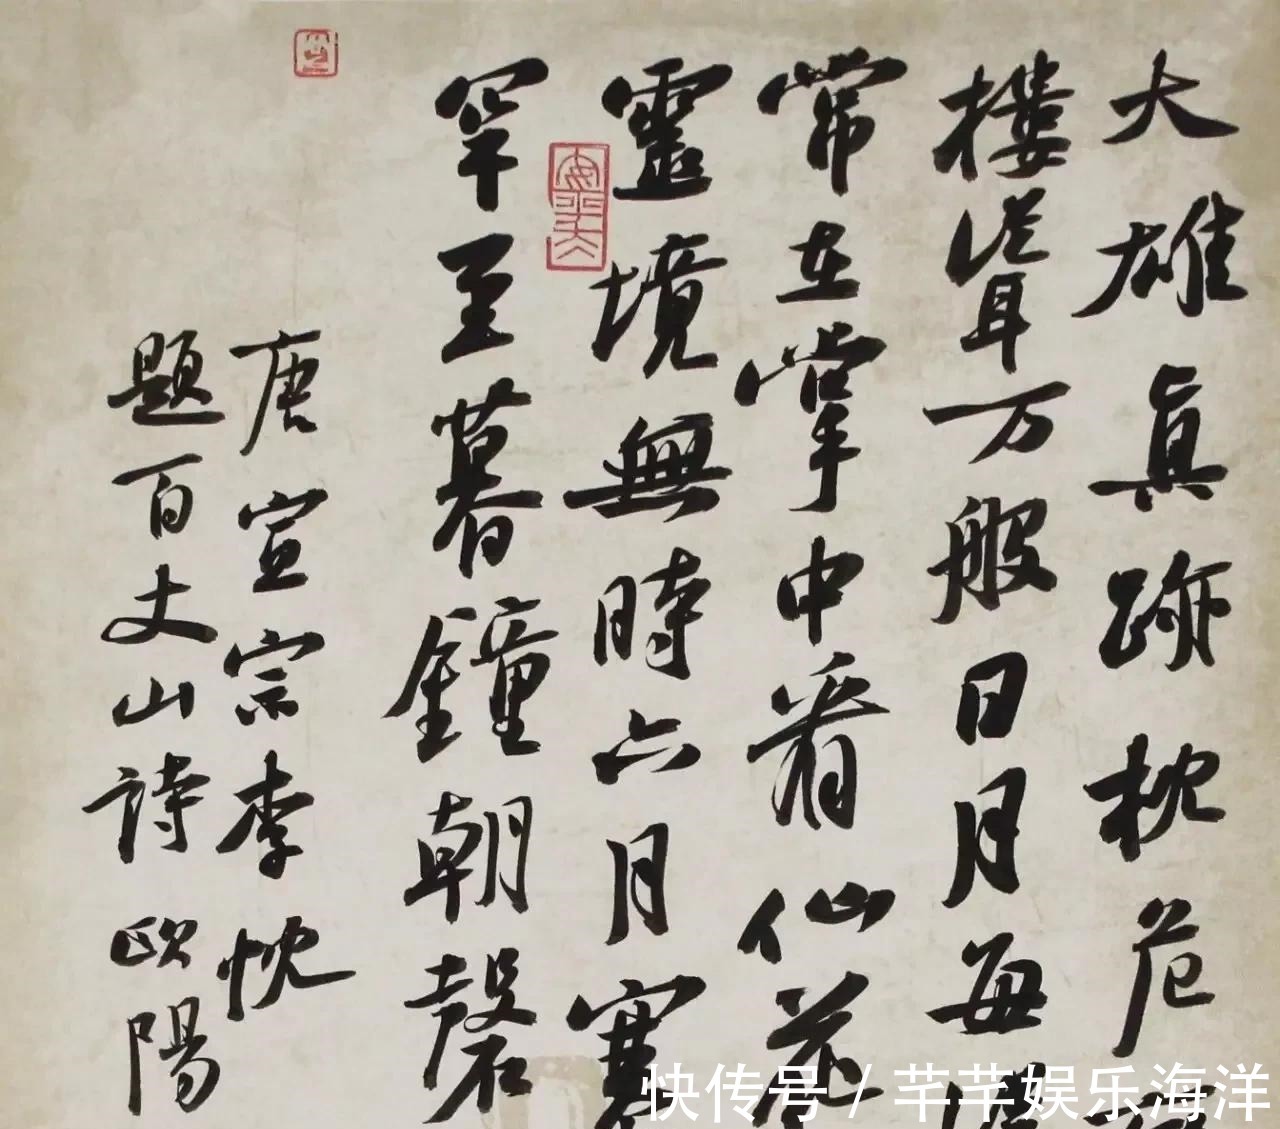 大雄真跡枕危
樓聳万般日月每
常在掌中看仙花
靈境無時六月寒
罕至暮鐘朝磬
唐宣宗李忱
題百丈山詩歐陽
快传号 / 芊芊娱乐海洋